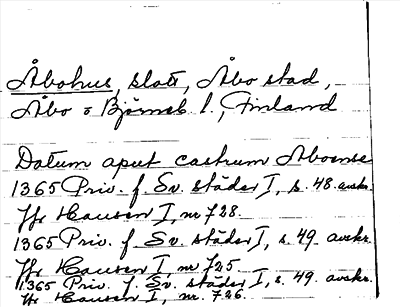 Åbohus, slott, Åbo stad,
Åbo o Björneb. l., Finland
Datum aput castrum Aboense
1365 Priv. f. Sv. städer I, s. 48. avskr.
Jfr Hausen I, nr 728.
1365 Priv. f. Sv. städer I, s. 49. avskr.
Jfr Hausen I, nr 725
1365 Priv. f. Sv. städer I, s. 49. avskr.
Jfr Hausen I, nr. 726.